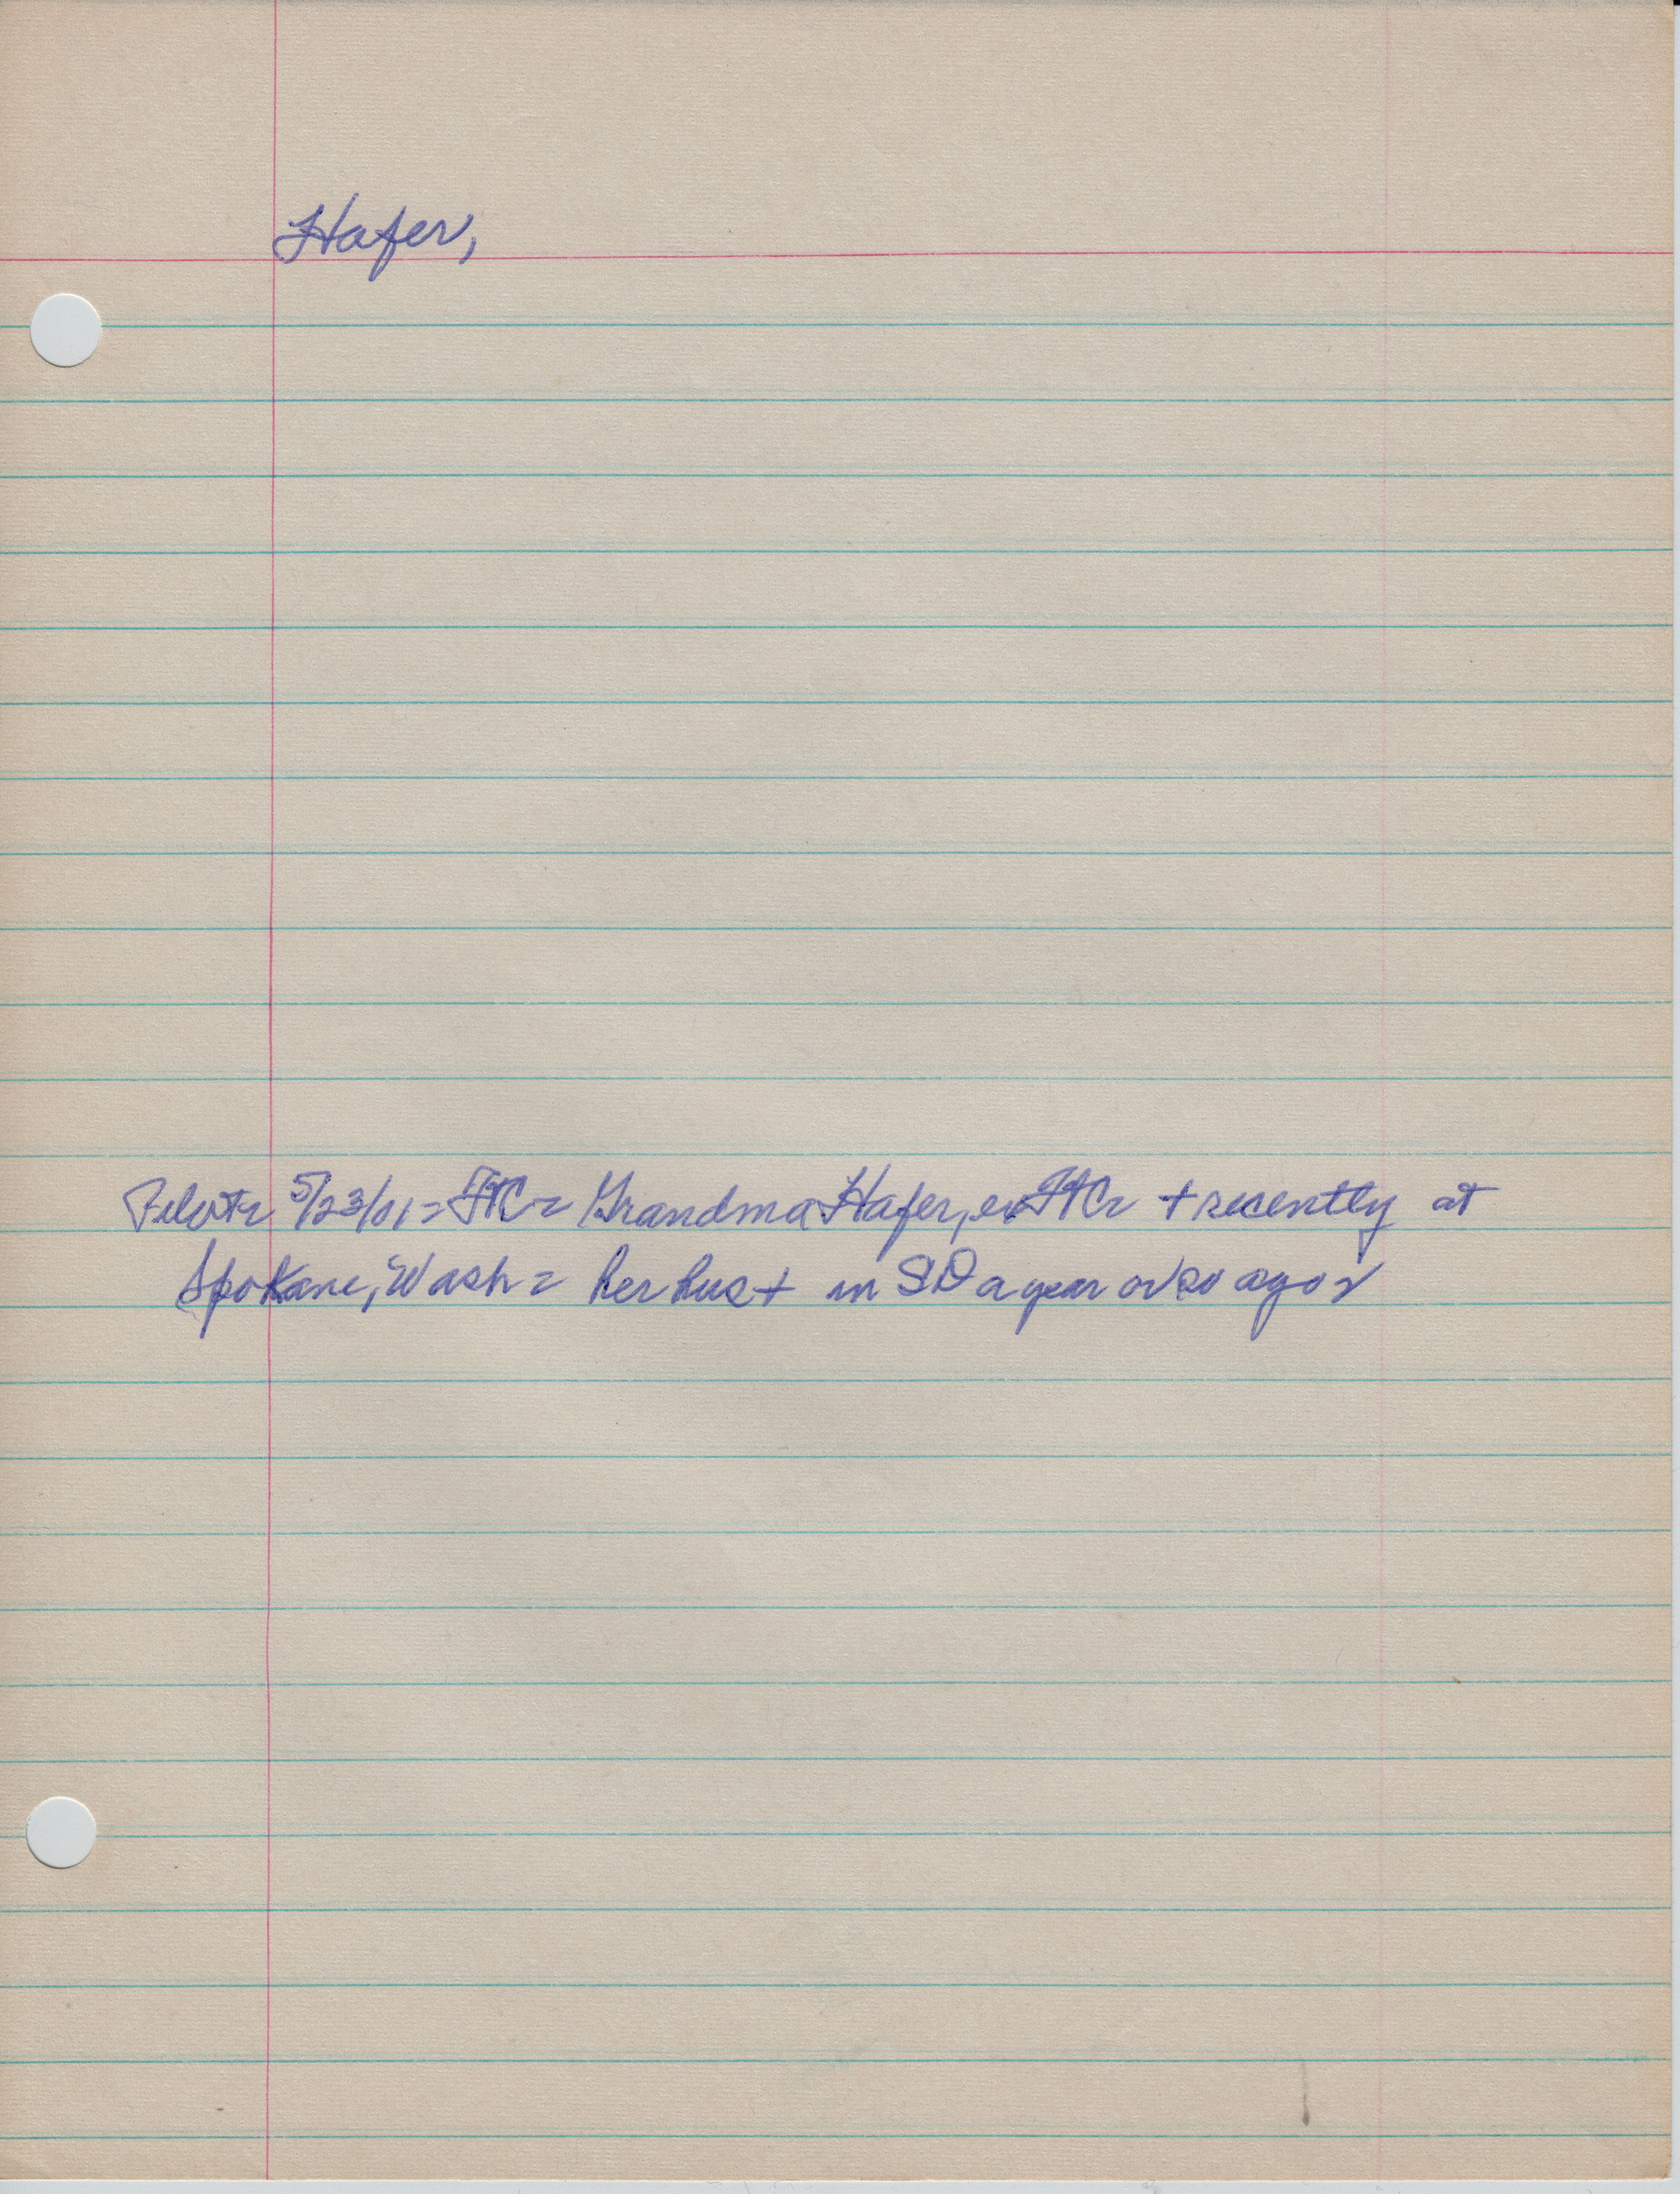 Hafer,
5/23/01 = FtC = Grandma Hafer, ex FtC = + recently at
Spokane, Wash = her hus + in SD a year or so ago =